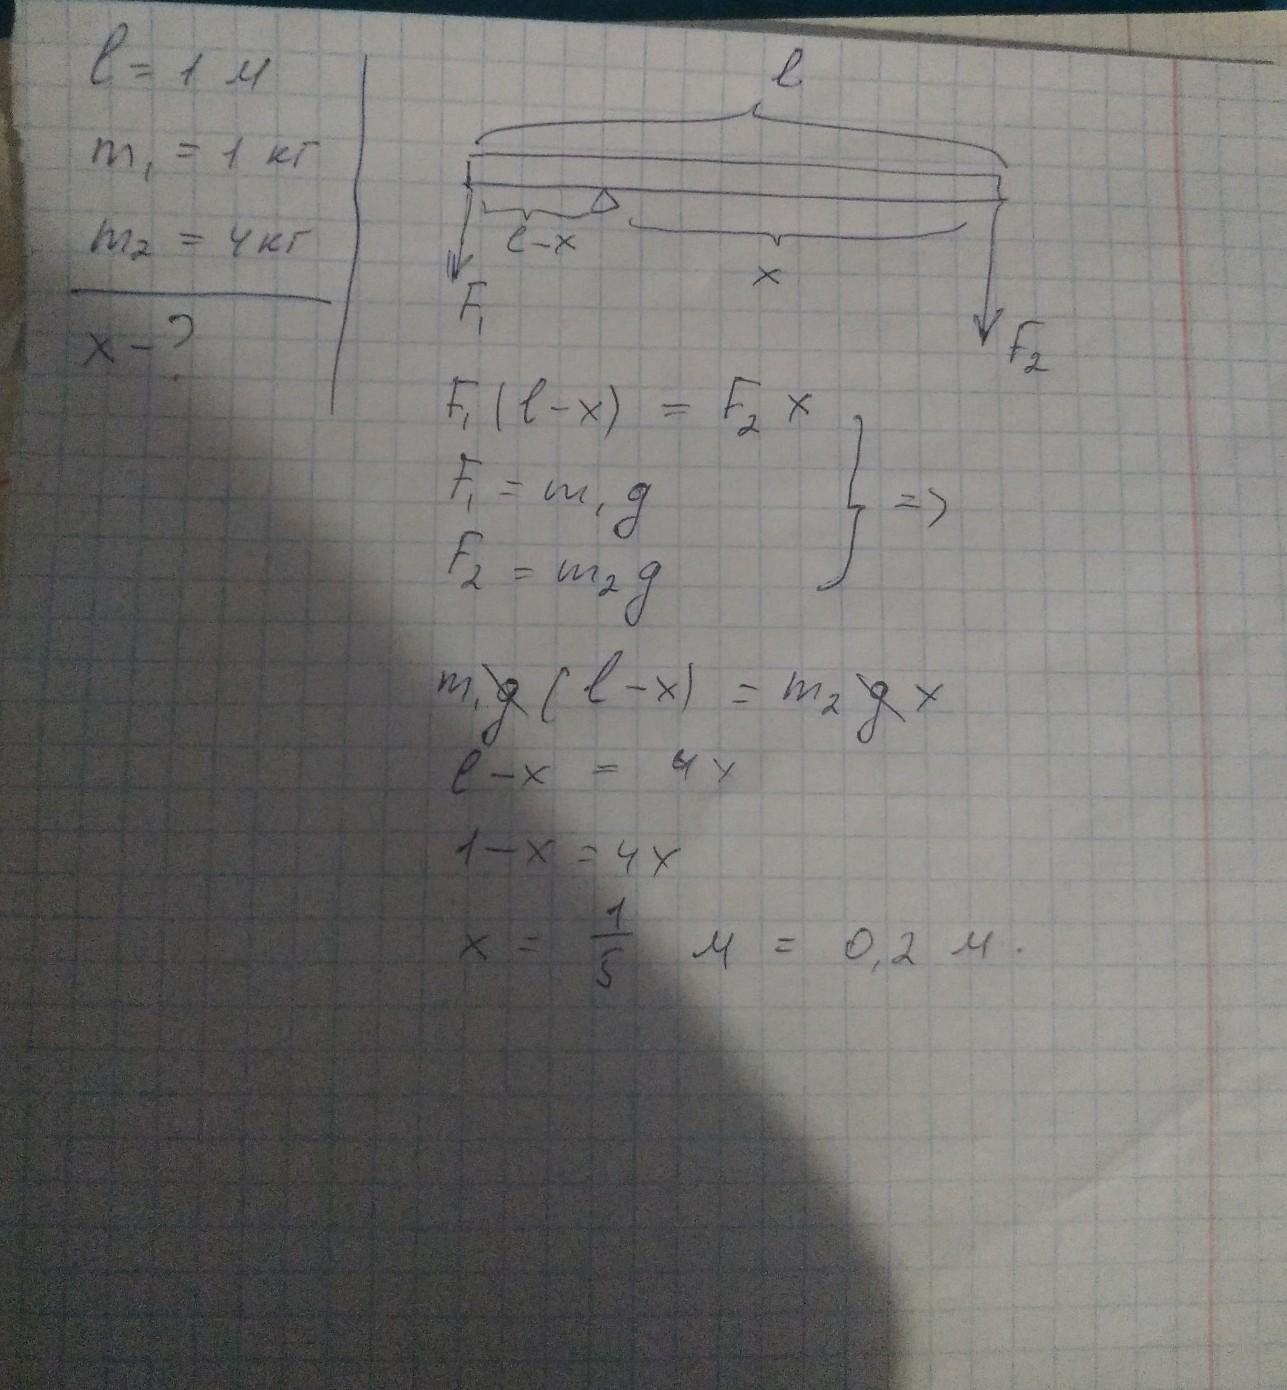 l = 1 м
m₁ = 1 кг
m₂ = 4 кг
x - ?
l
l-x
x
F₁
F₂
F₁ (l-x) = F₂ x
F₁ = m₁ g
F₂ = m₂ g
} =>
m₁g (l-x) = m₂ g x
l-x = 4x
1-x = 4x
x = 1/5 м = 0,2 м.